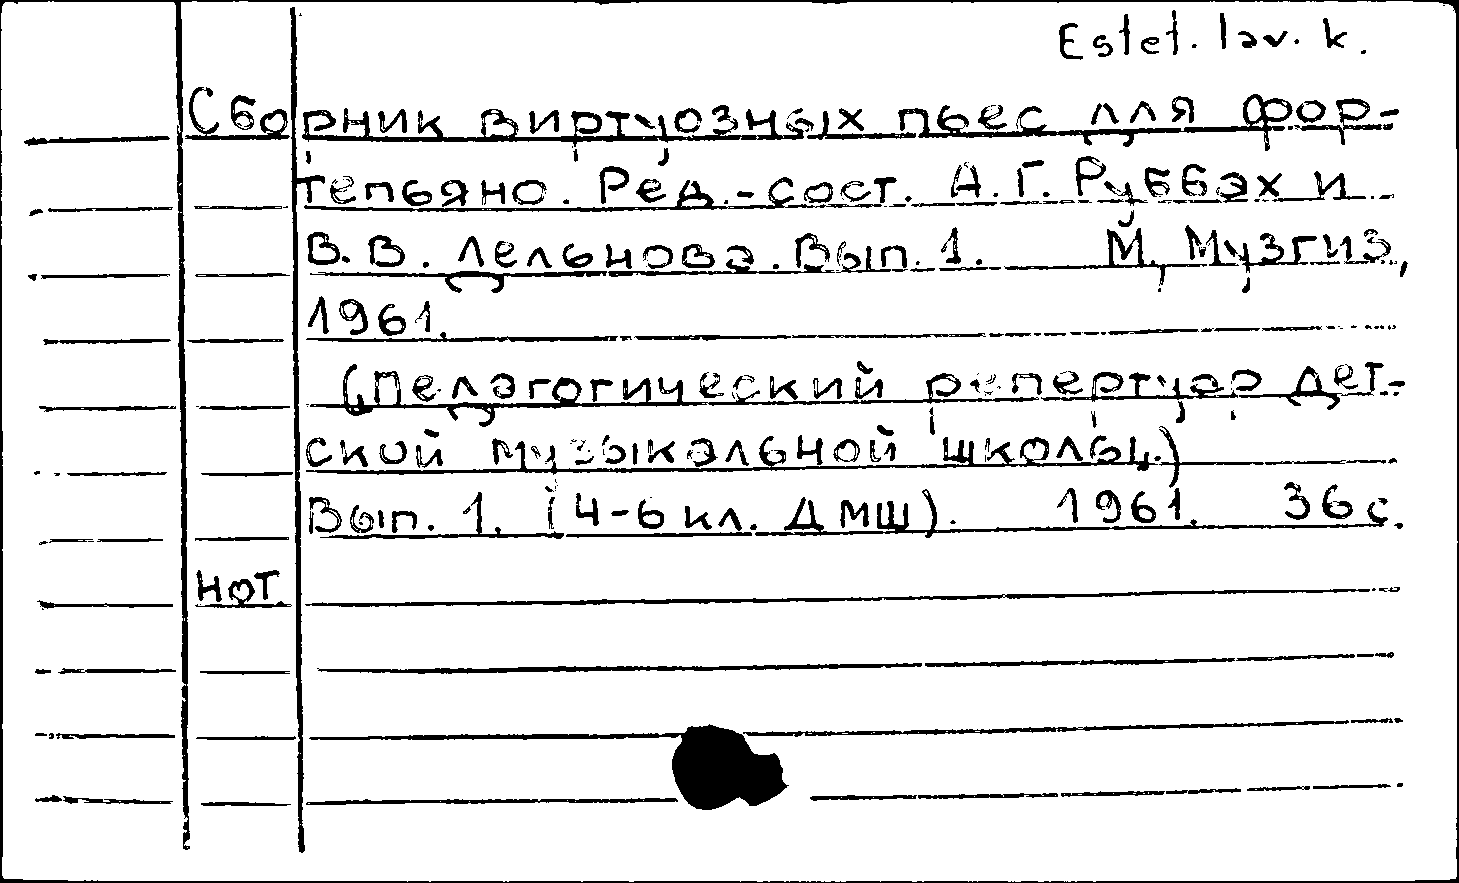 Estet. lav. k.
Сборник виртуозных пьес для фор-
тепьяно. Ред.-сост. А.Г. Руббах и
В.В. Дельнова. Вып. 1. М., Музгиз,
1961.
(Педагогический репертуар дет-
ской музыкальной школы.)
Вып. 1. (4-6 кл. ДМШ). 1961. 36 с.
нот.